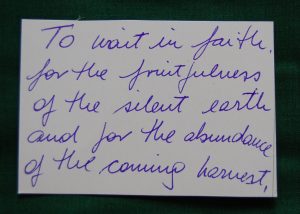 To wait in faith,
for the fruitfulness
of the silent earth
and for the abundance
of the coming harvest,